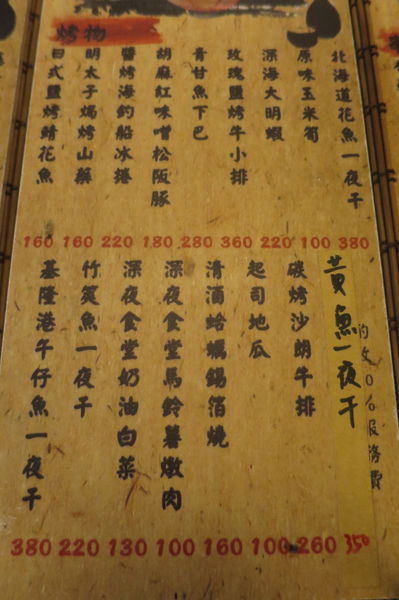 烤物
北海道花魚一夜干
原味玉米筍
深海大明蝦
玫瑰鹽烤牛小排
青甘魚下巴
胡麻紅味噌松阪豚
醬烤海釣船冰捲
明太子焗烤山藥
日式鹽烤鯖花魚
160 160 220 180 280 360 220 100 380
服務費
黃魚一夜干
碳烤沙朗牛排
起司地瓜
清酒蛤蠣錫箔燒
深夜食堂馬鈴薯燉肉
深夜食堂奶油白菜
竹筴魚一夜干
基隆港午仔魚一夜干
380 220 130 100 160 100 260 350